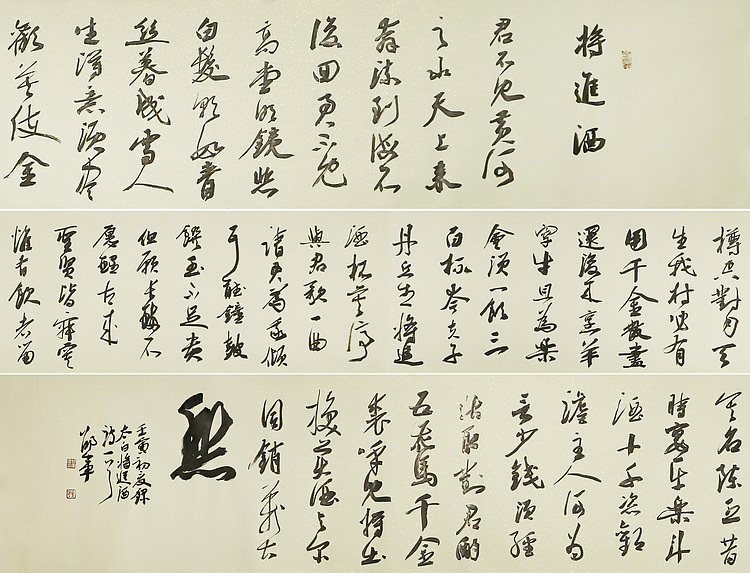 將進酒
君不見黃河
之水天上來
奔流到海不
復回君不見
高堂明鏡悲
白髮朝如青
絲暮成雪人
生得意須盡
歡莫使金
樽空對月天
生我材必有
用千金散盡
還復來烹羊
宰牛且為樂
會須一飲三
百杯岑夫子
丹丘生將進
酒杯莫停
與君歌一曲
請君為我傾
耳聽鐘鼓
饌玉不足貴
但願長醉不
願醒古來
聖賢皆寂寞
惟有飲者留
其名陳王昔
時宴平樂斗
酒十千恣歡
謔主人何為
言少錢須徑
沽取對君酌
五花馬千金
裘呼兒將出
換美酒與爾
同銷萬古
愁
壬寅初夏錄
太白將進酒
詩一首